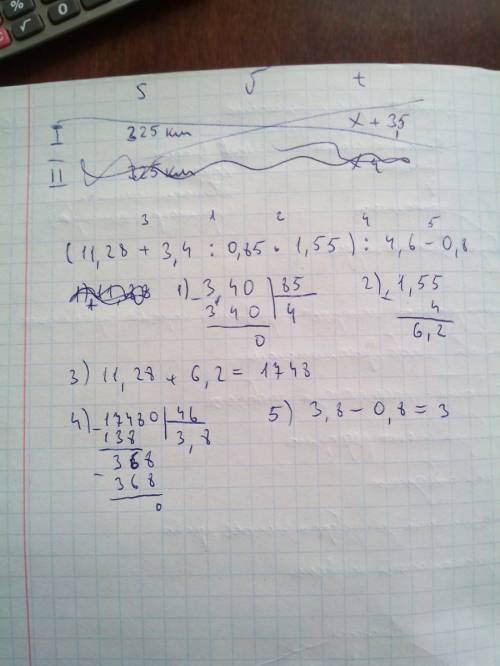 S v t
I 325 km x + 3,5
II 325 km
3 1 2 4 5
(11,28 + 3,4 : 0,85 · 1,55) : 4,6 - 0,8
1) - 3,40 | 85
340 | 4
0
2) 1,55
4
6,2
3) 11,28 + 6,2 = 1748
4) - 17480 | 46
138 | 3,8
- 368
368
0
5) 3,8 - 0,8 = 3